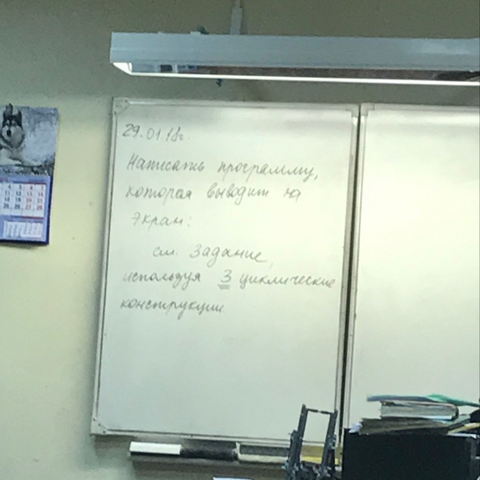 29.01.18г.
Написать программу,
которая выводит на
экран:
см. Задание,
используя 3 циклические
конструкции